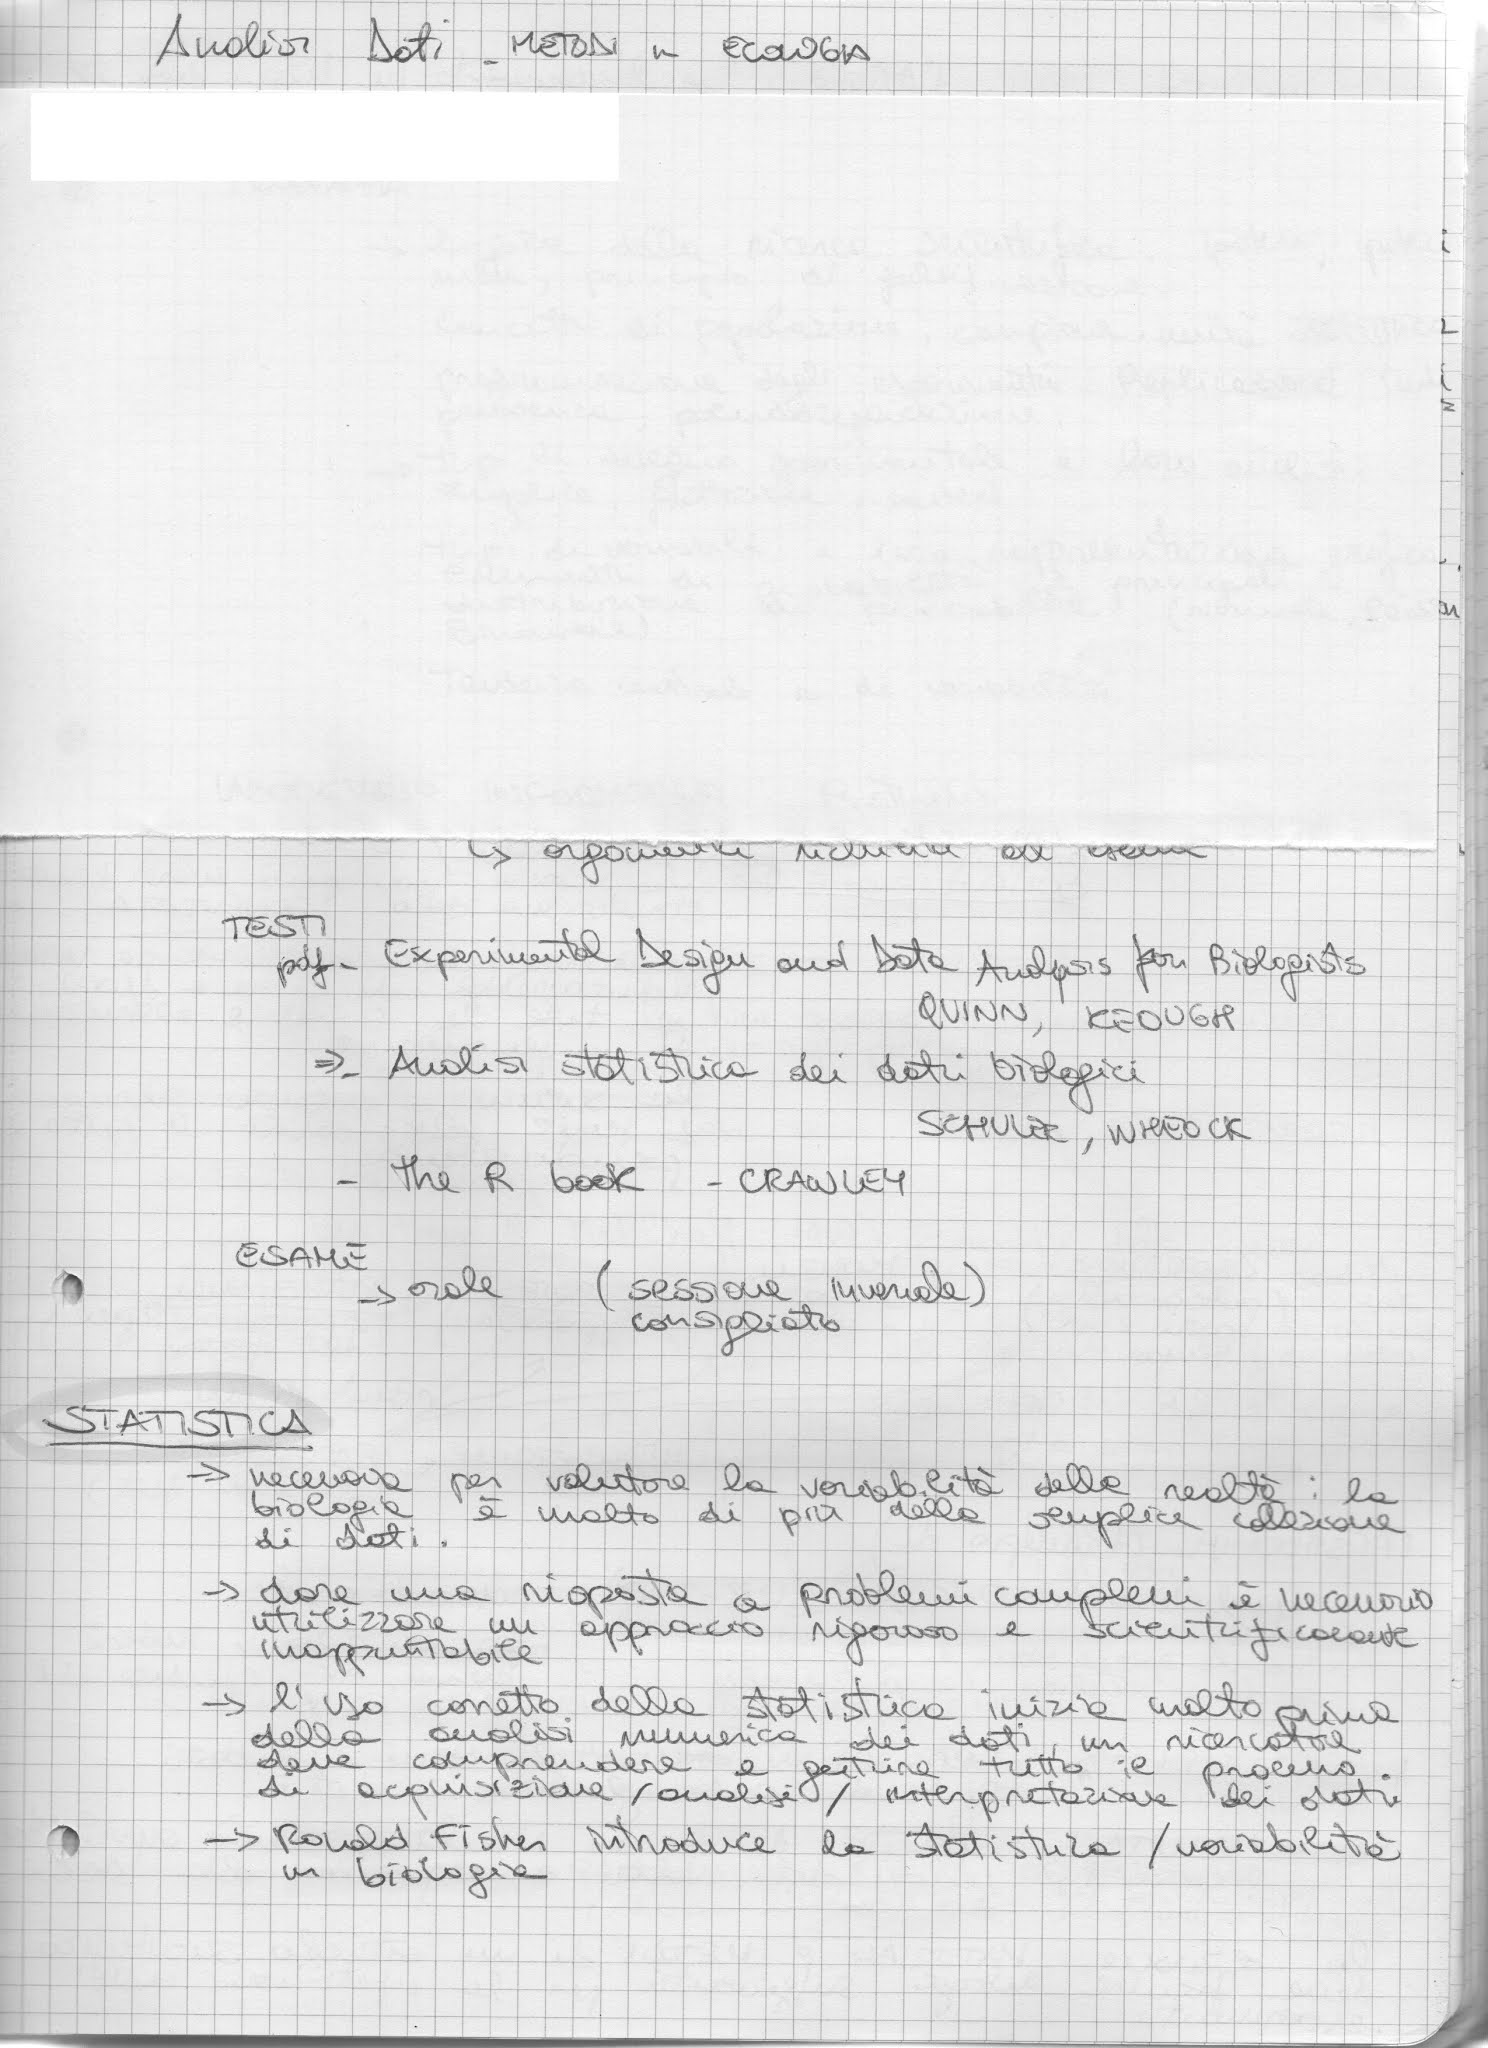 Analisi Dati - METODI in ECOLOGIA
↳ argomenti richiesti all'esame
TESTI
pdf - Experimental Design and Data Analysis for Biologists
QUINN, KEOUGH
⇒ - Analisi statistica dei dati biologici
SCHULZE, WHEOCK
- the R book - CRAWLEY
ESAME
→ orale (sessione invernale)
consigliato
STATISTICA
→ necessaria per valutare la variabilità della realtà: la
biologia è molto di più della semplice collezione
di dati.
→ dare una risposta a problemi complessi è necessario
utilizzare un approccio rigoroso e scientificamente
inappuntabile
→ l'uso corretto della statistica inizia molto prima
della analisi numerica dei dati, un ricercatore
deve comprendere e gestire tutto il processo
di acquisizione/analisi/interpretazione dei dati.
→ Ronald Fisher introduce la statistica/variabilità
in biologia